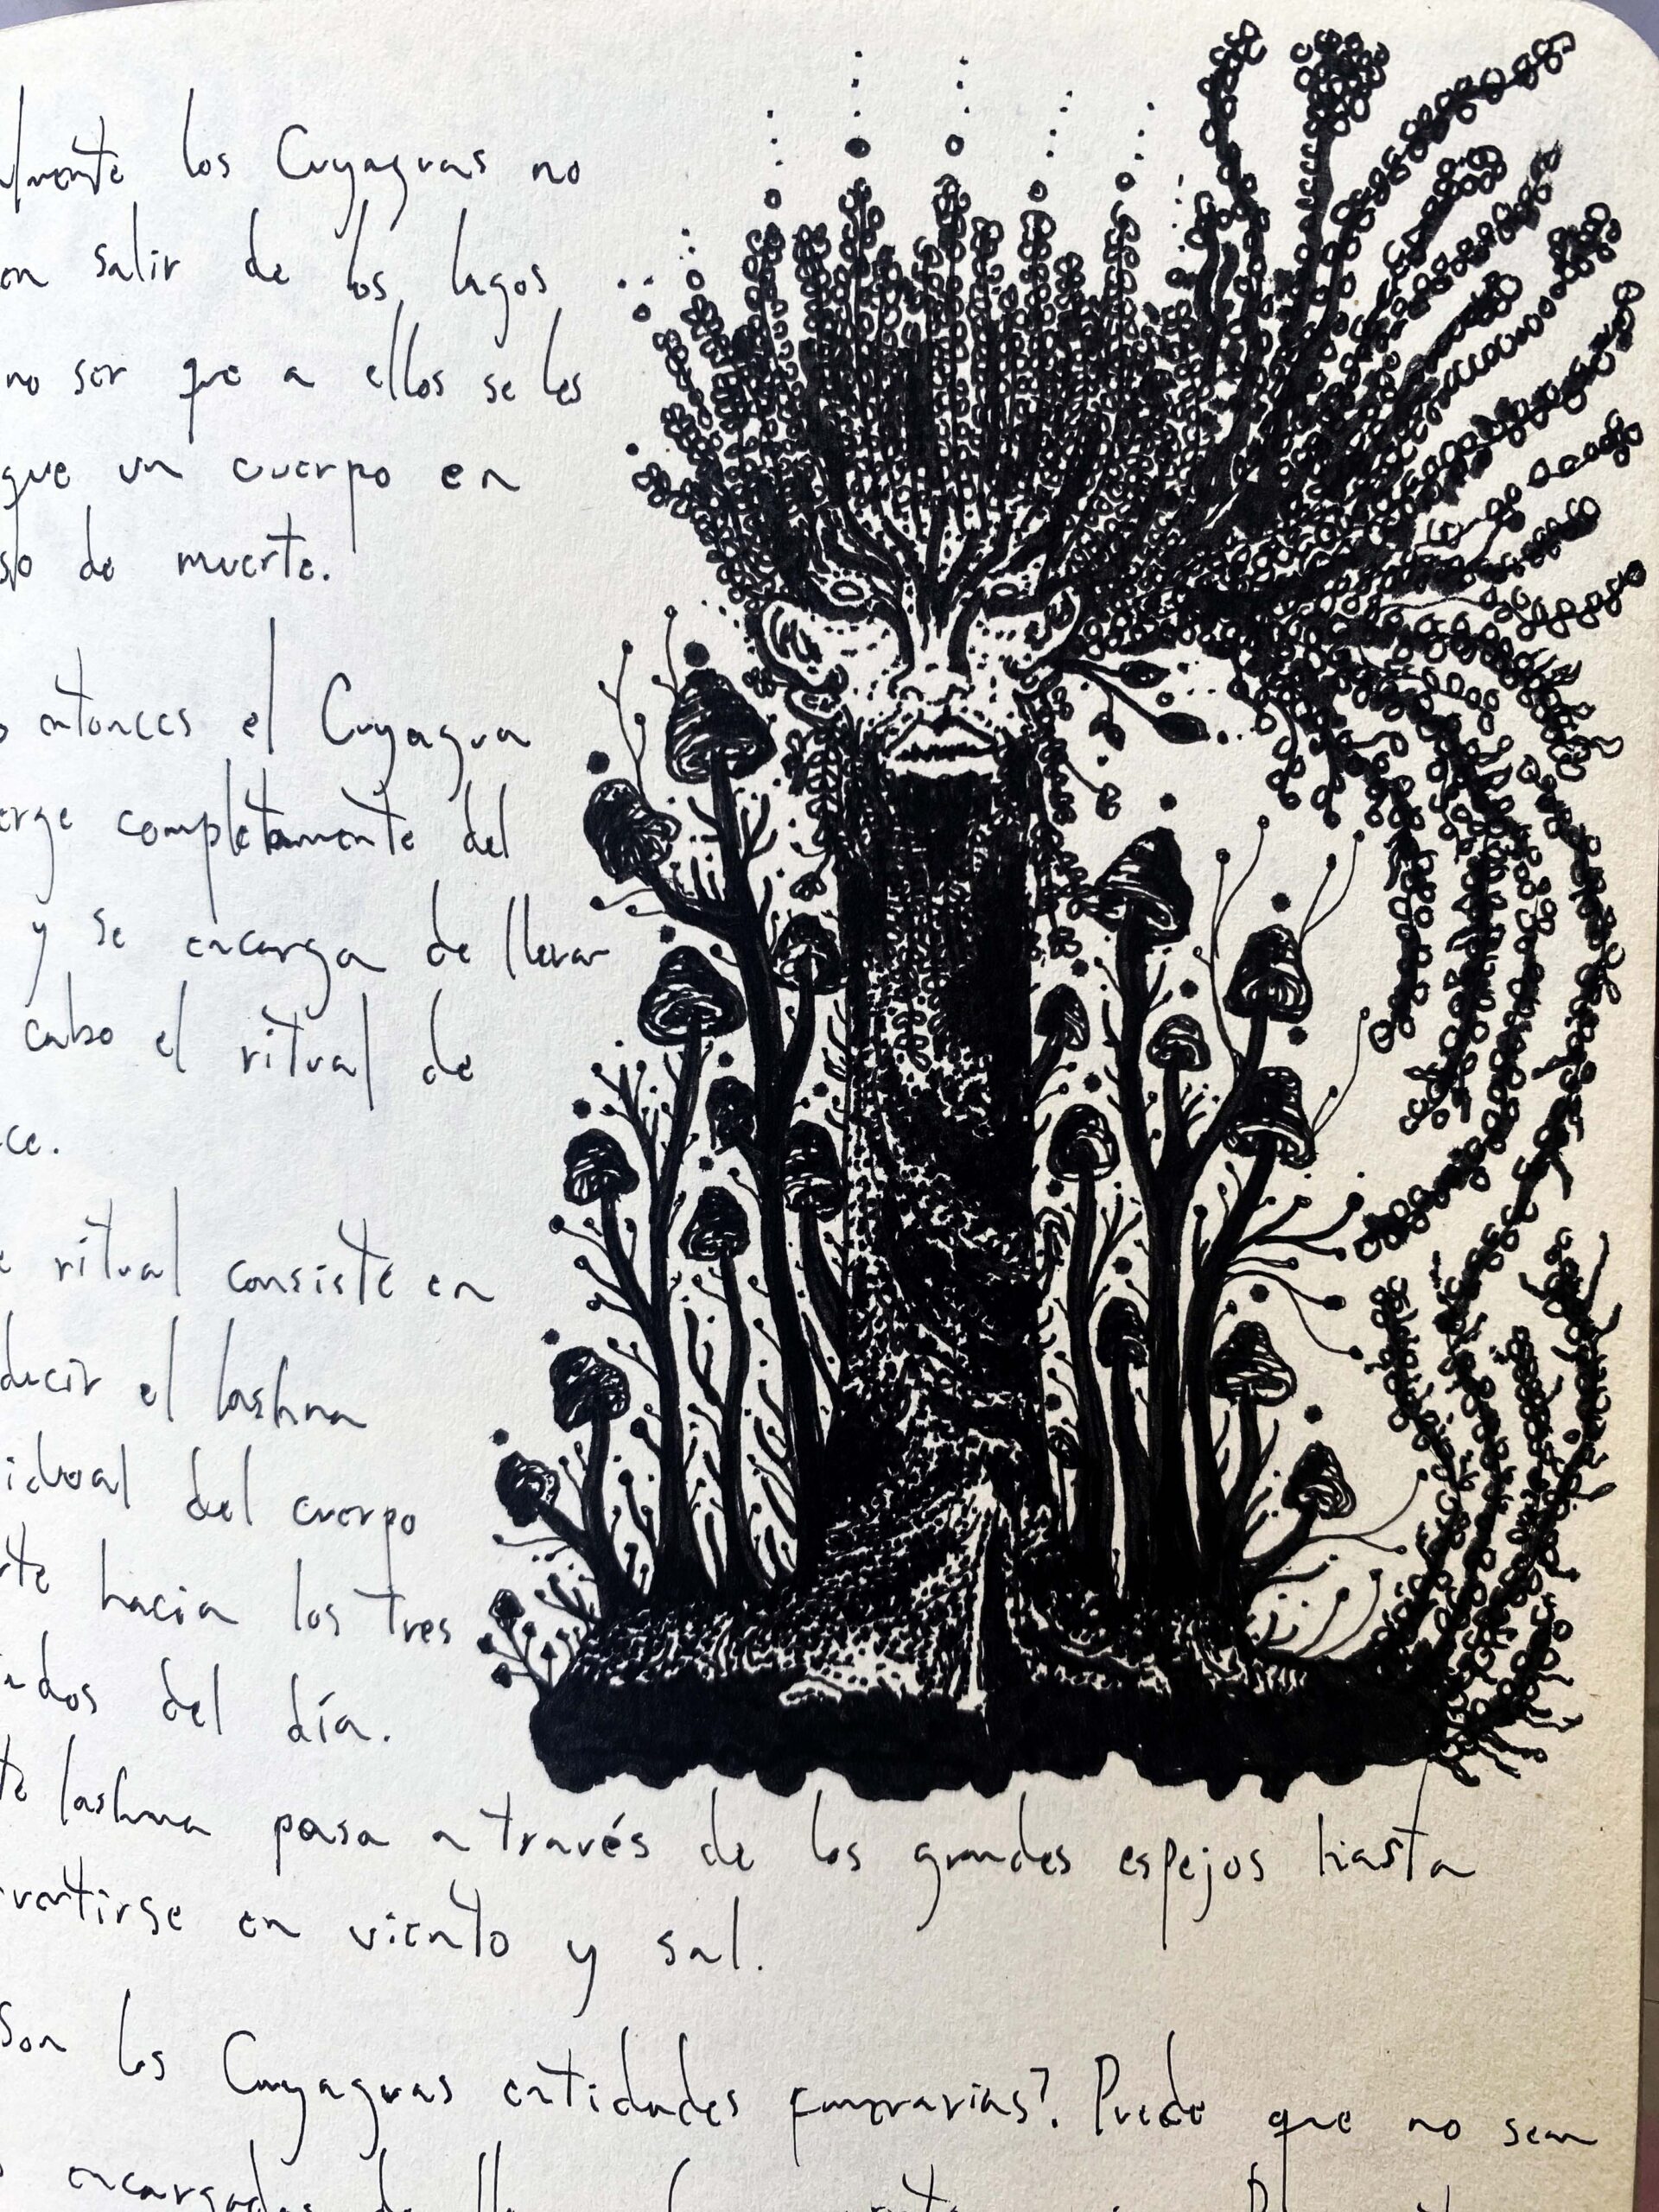 los Cuyaguas no
salir de los lagos
no ser que a ellos se les
gue un cuerpo en
de muerte.
entonces el Cuyagua
erge completamente del
y se encarga de llevar
cabo el ritual de
ce.
ritual consiste en
ducir el lashna
idual del cuerpo
rte hacia los tres
del día.
lashna pasa a través de los grandes espejos hasta
vertirse en viento y sal.
Son los Cuyaguas entidades funerarias? Puede que no sean